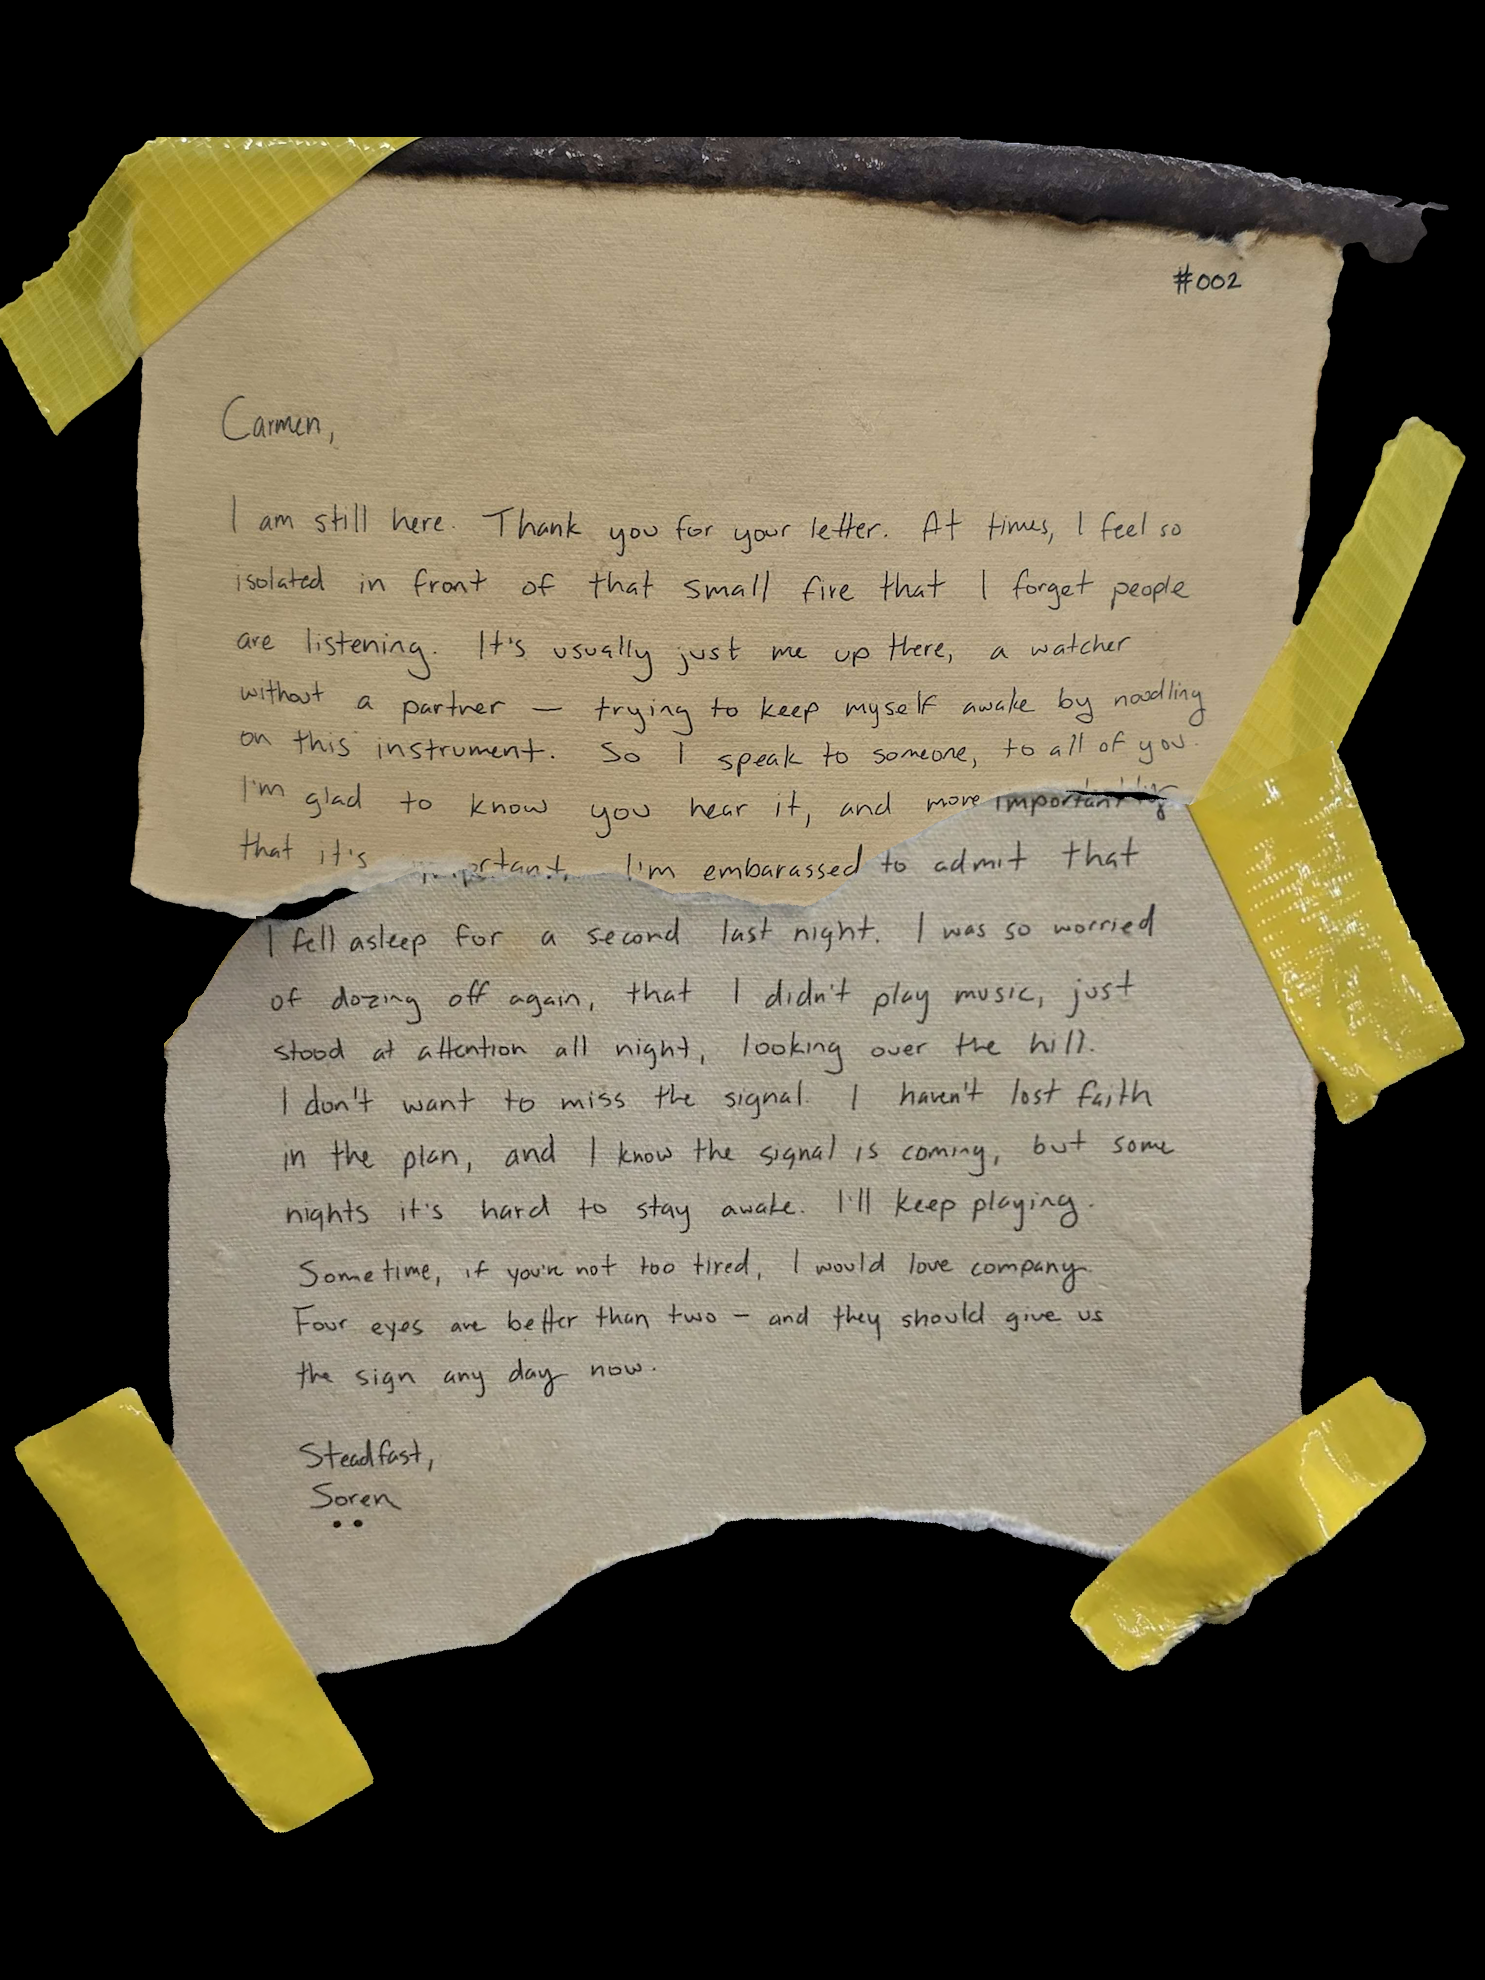 #002
Carmen,
I am still here. Thank you for your letter. At times, I feel so
isolated in front of that small fire that I forget people
are listening. It's usually just me up there, a watcher
without a partner — trying to keep myself awake by noodling
on this instrument. So I speak to someone, to all of you.
I'm glad to know you hear it, and more importantly
that it's important. I'm embarassed to admit that
I fell asleep for a second last night. I was so worried
of dozing off again, that I didn't play music, just
stood at attention all night, looking over the hill.
I don't want to miss the signal. I haven't lost faith
in the plan, and I know the signal is coming, but some
nights it's hard to stay awake. I'll keep playing.
Sometime, if you're not too tired, I would love company.
Four eyes are better than two — and they should give us
the sign any day now.
Steadfast,
Soren